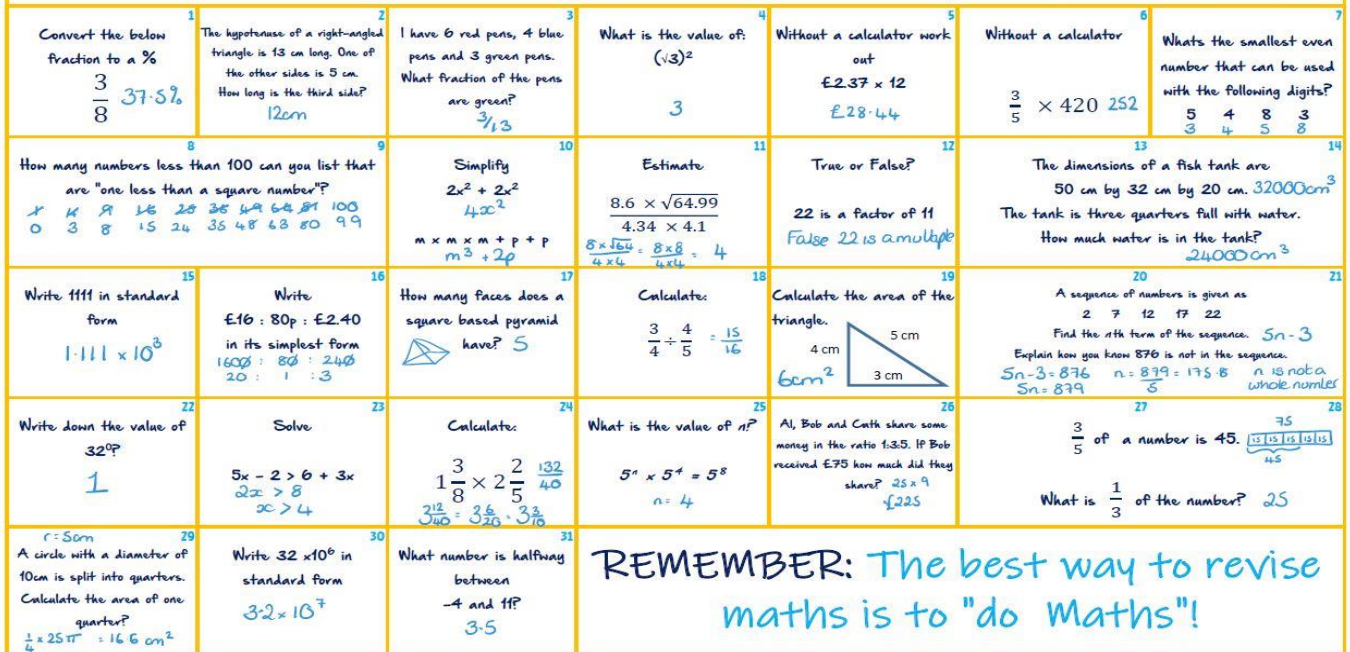 1
Convert the below
fraction to a %
3/8 37.5%
2
The hypotenuse of a right-angled
triangle is 13 cm long. One of
the other sides is 5 cm.
How long is the third side?
12cm
3
I have 6 red pens, 4 blue
pens and 3 green pens.
What fraction of the pens
are green?
3/13
4
What is the value of:
(√3)²
3
5
Without a calculator work
out
£2.37 x 12
£28.44
6
Without a calculator
3/5 × 420 252
7
Whats the smallest even
number that can be used
with the following digits?
5 4 8 3
3 4 5 8
8 9
How many numbers less than 100 can you list that
are "one less than a square number"?
1 4 9 16 25 36 49 64 81 100
0 3 8 15 24 35 48 63 80 99
10
Simplify
2x² + 2x²
4x²
m x m x m + p + p
m³ + 2p
11
Estimate
8.6 × √64.99
4.34 × 4.1
8 x √64 / 4 x 4 = 8 x 8 / 4 x 4 = 4
12
True or False?
22 is a factor of 11
False 22 is a multiple
13 14
The dimensions of a fish tank are
50 cm by 32 cm by 20 cm. 32000cm³
The tank is three quarters full with water.
How much water is in the tank?
24000cm³
15
Write 1111 in standard
form
1.111 x 10³
16
Write
£16 : 80p : £2.40
in its simplest form
1600 : 80 : 240
20 : 1 : 3
17
How many faces does a
square based pyramid
have? 5
18
Calculate:
3/4 ÷ 4/5 = 15/16
19
Calculate the area of the
triangle.
5 cm
4 cm
3 cm
6cm²
20 21
A sequence of numbers is given as
2 7 12 17 22
Find the nth term of the sequence. 5n - 3
Explain how you know 876 is not in the sequence.
5n - 3 = 876 n = 879/5 = 175.8 n is not a
5n = 879 whole number
22
Write down the value of
32⁰?
1
23
Solve
5x - 2 > 6 + 3x
2x > 8
x > 4
24
Calculate:
1 3/8 × 2 2/5 132/40
3 12/40 = 3 6/20 = 3 3/10
25
What is the value of n?
5ⁿ x 5⁴ = 5⁸
n = 4
26
Al, Bob and Cath share some
money in the ratio 1:3:5. If Bob
received £75 how much did they
share? 25 x 9
£225
27 28
3/5 of a number is 45.
75
15 15 15 15 15
45
What is 1/3 of the number? 25
r = 5cm 29
A circle with a diameter of
10cm is split into quarters.
Calculate the area of one
quarter?
1/4 x 25π = 16.6 cm²
30
Write 32 x10⁶ in
standard form
3.2 x 10⁷
31
What number is halfway
between
-4 and 11?
3.5
REMEMBER: The best way to revise
maths is to "do Maths"!